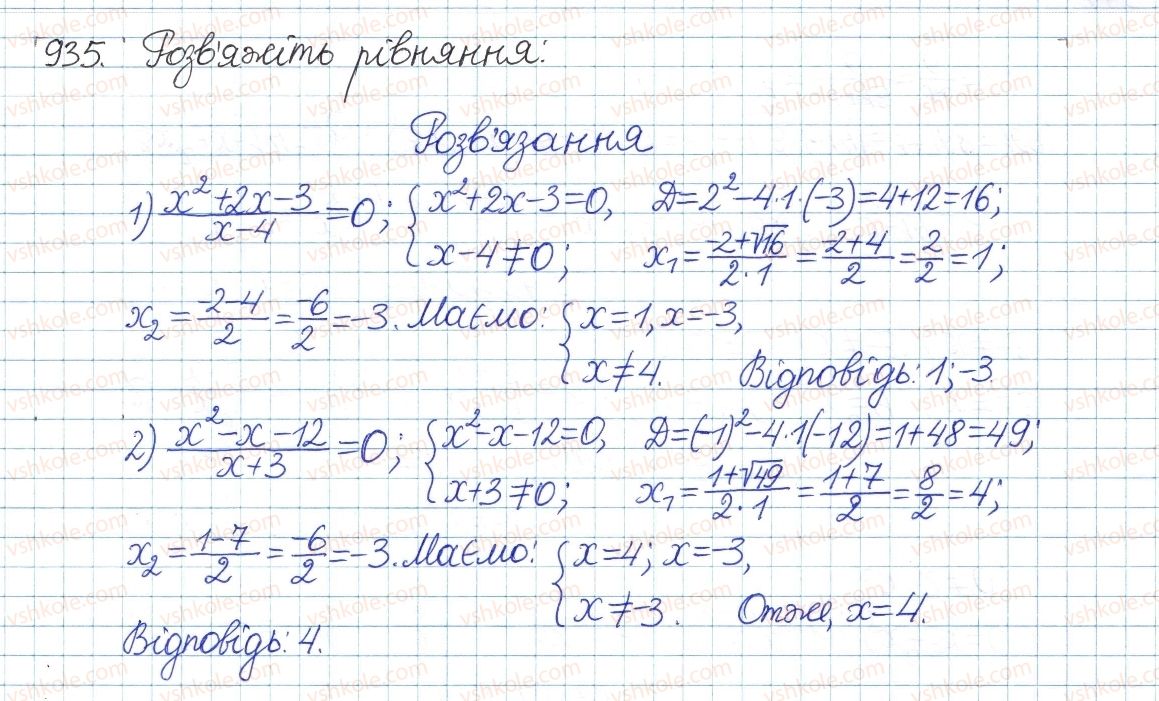 935. Розв'яжіть рівняння:
Розв'язання
1) (x²+2x-3)/(x-4)=0; { x²+2x-3=0, x-4≠0; D=2²-4·1·(-3)=4+12=16;
x₁=(-2+√16)/(2·1)=(-2+4)/2=2/2=1;
x₂=(-2-4)/2=-6/2=-3. Маємо: { x=1, x=-3, x≠4. Відповідь: 1; -3
2) (x²-x-12)/(x+3)=0; { x²-x-12=0, x+3≠0; D=(-1)²-4·1(-12)=1+48=49;
x₁=(1+√49)/(2·1)=(1+7)/2=8/2=4;
x₂=(1-7)/2=-6/2=-3. Маємо: { x=4; x=-3, x≠-3. Отже, x=4.
Відповідь: 4.
vshkole.com